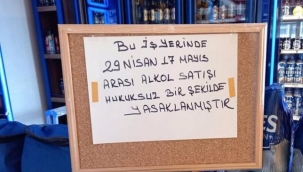 BU İŞ YERİNDE
29 NİSAN 17 MAYIS
ARASI ALKOL SATIŞI
HUKUKSUZ BİR ŞEKİLDE
YASAKLANMIŞTIR